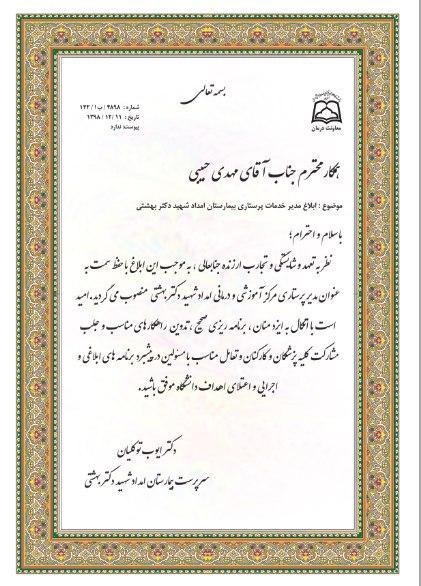 بسمه تعالی
شماره : ۴۸۹۸ / ب ۱ / ۱۴۲
تاریخ : ۱۱ / ۱۲ / ۱۳۹۸
پیوست: ندارد
معاونت درمان
همکار محترم جناب آقای مهدی حبیبی
موضوع : ابلاغ مدیر خدمات پرستاری بیمارستان امداد شهید دکتر بهشتی
با سلام و احترام ؛
نظر به تعهد و شایستگی و تجارب ارزنده جنابعالی ، به موجب این ابلاغ با حفظ سمت به
عنوان مدیر پرستاری مرکز آموزشی و درمانی امداد شهید دکتر بهشتی منصوب می گردید. امید
است با اتکال به ایزد منان ، برنامه ریزی صحیح ، تدوین راهکارهای مناسب و جلب
مشارکت کلیه پزشکان و کارکنان و تعامل مناسب با مسئولین در پیشبرد برنامه های ابلاغی و
اجرایی و اعتلای اهداف دانشگاه موفق باشید.
دکتر ایوب توکلیان
سرپرست بیمارستان امداد شهید دکتر بهشتی